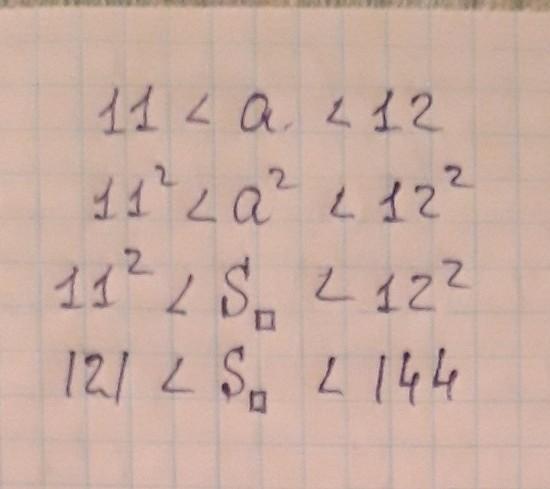 11 < a < 12
11² < a² < 12²
11² < S□ < 12²
121 < S□ < 144